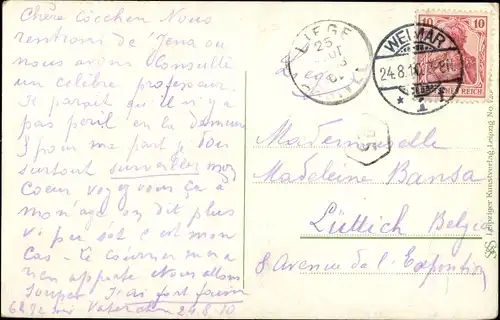 Chère Cocchen Nous
rentrons de Jena où
nous avons consulté
un célèbre professeur.
Il parait qu'il n'y a
pas peril en la demeure
pour ma part je dois
surtout surveiller mon
coeur voyez vous ça à
mon age on dit plus
c'est mon
cas - Le courrier m'a
rien apporté Nous allons
souper J'ai fort faim
24.8.10
LIEGE
25
WEIMAR
24.8.10
10
10
Mademoiselle
Madeleine Bansa
Lüttich Belgien
8 Avenue de l'Exposition
Leipziger Kunstverlag, Leipzig